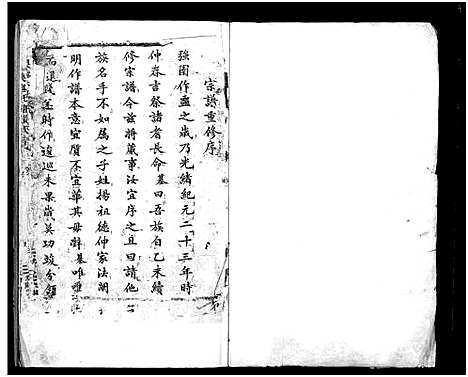 宗譜重修序
強圉作噩之歲乃光緒紀元二十三年時
仲春吉祭諸者長命基曰吾族自乙未續
修宗譜今茲將蕆事汝宜序之且曰請他
族名手不如属之子姓揚祖德仲家法闡
明作譜本意宜質不宜華其毋辭基唯唯
而退踐筵時作逡巡未果嵗英功竣分領